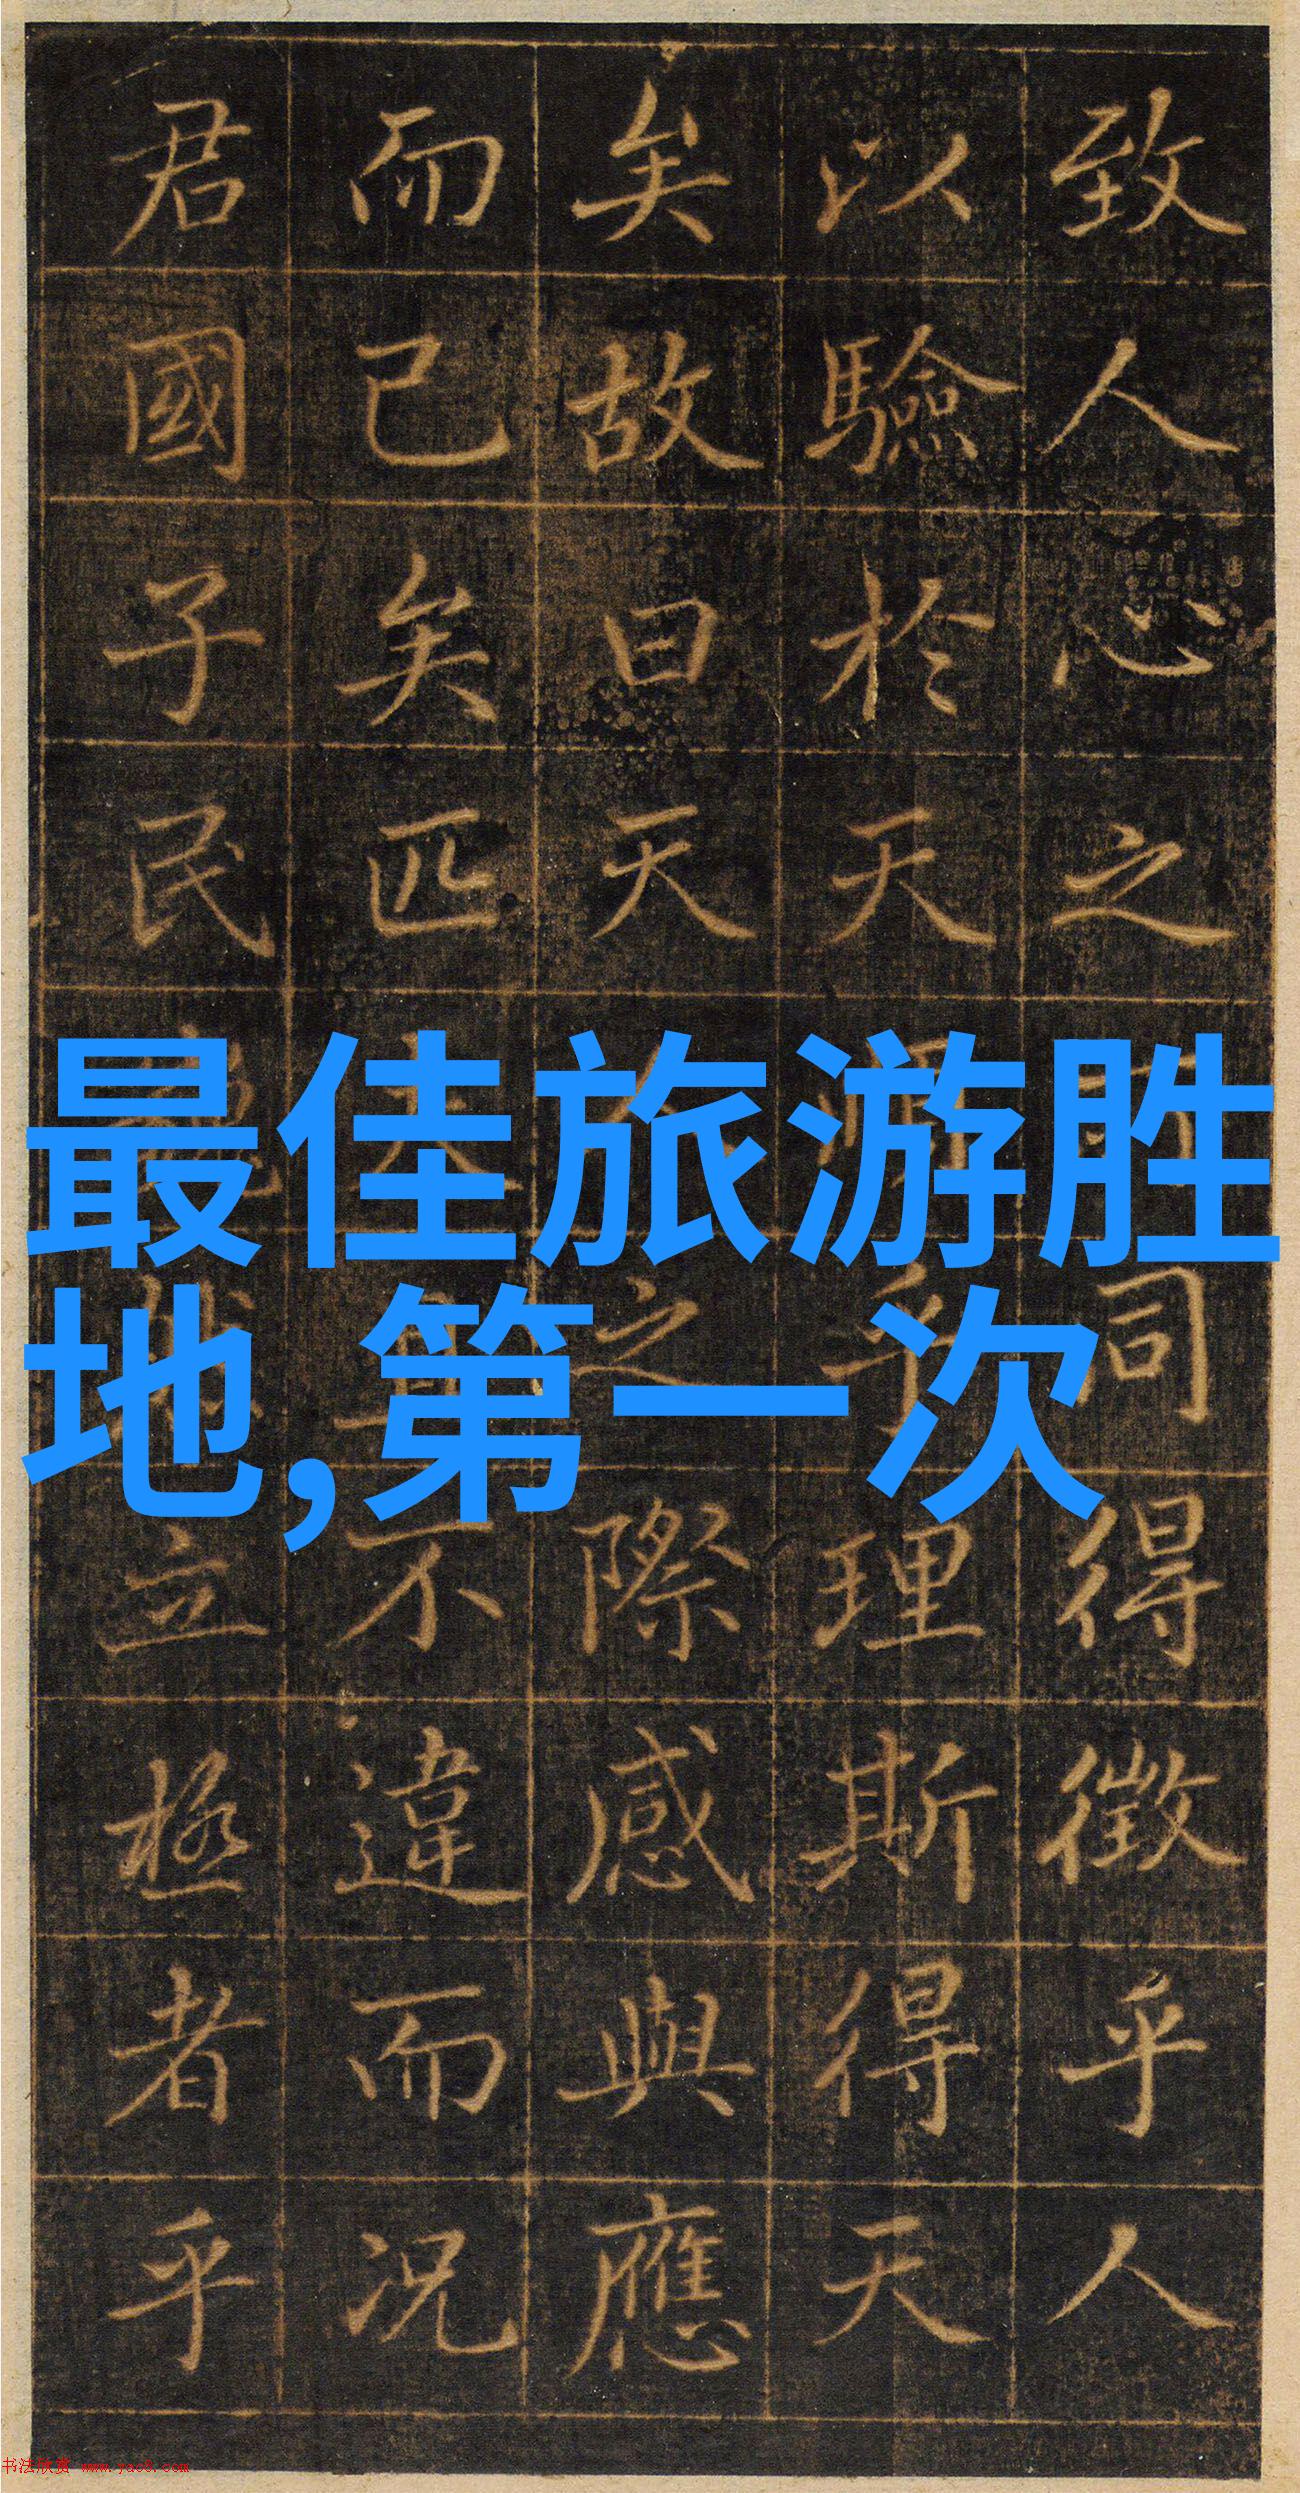 致人心之同得徵乎人
以驗於天乎理斯得天
矣故曰天人之際感與應
而已矣匹夫不違而況
君國子民立極者乎
最佳旅游胜
地,第一次
书法欣赏 www.yac8.com